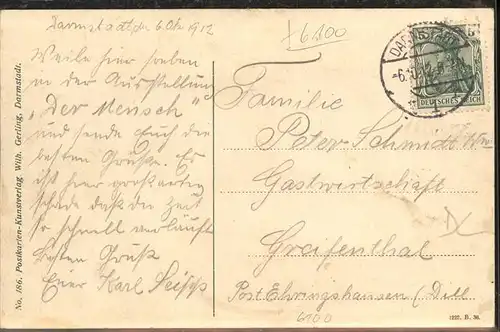 Darmstadt den 6 Okt 1912
Weile hier soeben
in der Ausstellung
"Der Mensch"
und sende Euch die
besten Grüße. Es
ist hier großartig
schade daß die Zeit
so schnell verläuft
Besten Gruß
Euer Karl
+6100
Familie
Peter Schmidt
Gastwirtschaft
Greifenthal
Post Ehringshausen (Dill
6100
DARMSTADT
DEUTSCHES REICH
No. 186. Postkarten-Kunstverlag Wilh. Gerling, Darmstadt.